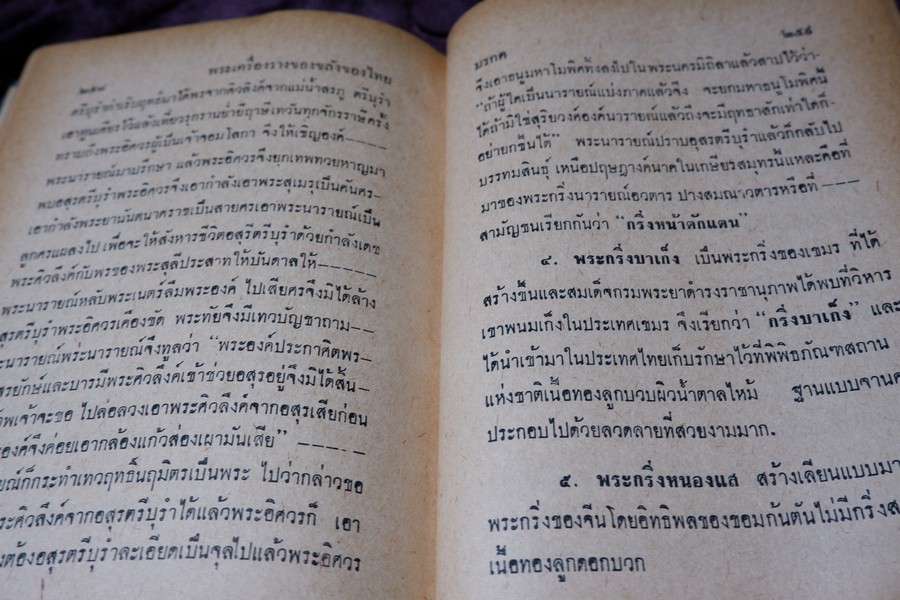 ๒๕๘ พระเครื่องรางของขลังของไทย
ตรีบุรำ
เอาตูนเตียรไว้แล้วเที่ยวรุกรานย่ำยีฤาษีเทวันทุกจักรราษีครั้ง
ทราบถึงพระอิศวรผู้เป็นเจ้าจอมโลกา จึงให้เชิญองค์-----
พระนารายณ์มาปรึกษา แล้วพระอิศวรจึงยุกเทพทวยหาญมา
พบอสูรตรีบุรำพระอิศวรจึงเอากำลังเอาพระสุเมรุเป็นคันศร-
เอากำลังพระยานันตนาคราชเป็นสายศรเอาพระนารายณ์เป็น
ลูกศรแผลงไป เพื่อจะให้สังหารชีวิตอสุรีตรีบุรำด้วยกำลังเดช
พระศิวลึงค์กับพรของพระสุลีประสาทให้บันดาลให้-----
พระนารายณ์หลับพระเนตร์ลืมพระองค์ ไปเสียศรจึงมิได้ล้าง
สุรตรีบุรำพระอิศวรเคืองขัด พระทัยจึงมีเทวบัญชาถาม--
ะนารายณ์พระนารายณ์จึงทูลว่า "พระองค์ประกาศิตพร-
สุรยักษ์และบารมีพระศิวลึงค์เข้าช่วยอสุรอยู่จึงมิได้สิ้น-
พเจ้าจะขอ ไปล่อลวงเอาพระศิวลึงค์จากอสุรเสียก่อน
องค์จึงค่อยเอากล้องแก้วส่องเผามันเสีย" ----
ยณ์ก็กระทำเทวฤทธินิ์ฤมิตรเป็นพระ ไปว่ากล่าวขอ
ะศิวลึงค์จากอสุรตรีบุรำได้แล้วพระอิศวรก็ เอา
งต้องอสุรตรีบุรำละเอียดเป็นจุลไปแล้วพระอิศวร
มรกต ๒๕๙
จึงเอาธนูมหาโมพิศทิ้งลงไปในพระนครมิถิลาแล้วสาปไว้ว่า-
"ถ้าผู้ใดเป็นนารายณ์แบ่งภาคแล้วจึง จะยกมหาธนูโมพิศนี้
ได้ถ้ามิใช่สุริยวงค์องค์นารายณ์แล้วถึงจะมีฤทธาสักเท่าใดก็-
อย่ายกขึ้นได้" พระนารายณ์ปราบอสุรตรีบุรำแล้วก็กลับไป
บรรทมสินธุ์ เหนือปฤษฎางค์นาคในเกษียรสมุทรนี้แหละคือที่
มาของพระกริ่งนารายณ์อวตาร ปางสมณาวตารหรือที่ ---
สามัญชนเรียกกันว่า "กริ่งหน้าตักแตน"
๔. พระกริ่งบาเก็ง เป็นพระกริ่งของเขมร ที่ได้
สร้างขึ้นและสมเด็จกรมพระยาดำรงราชานุภาพได้พบที่วิหาร
เขาพนมเก็งในประเทศเขมร จึงเรียกว่า "กริ่งบาเก็ง" และ
ได้นำเข้ามาในประเทศไทยเก็บรักษาไว้ที่พิพิธภัณฑสถาน
แห่งชาติเนื้อทองลูกบวบผิวน้ำตาลไหม้ ฐานแบบจาน
ประกอบไปด้วยลวดลายที่สวยงามมาก.
๕. พระกริ่งหนองแส สร้างเลียนแบบมา
พระกริ่งของจีนโดยอิทธิพลของขอมก้นตันไม่มีกริ่ง
เนื้อทองลูกดอกบวก